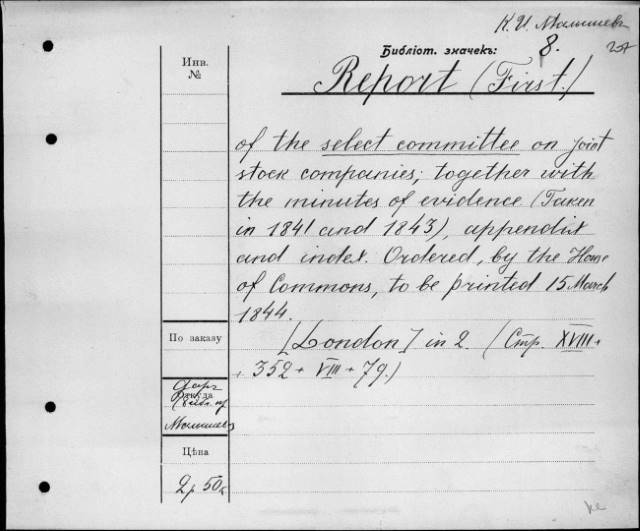 К. И. Малышевъ
Библіот. значекъ: 8.
Инв. №
Report (First.)
of the select committee on joint
stock companies; together with
the minutes of evidence (Taken
in 1841 and 1843), appendix
and index. Ordered, by the House
of Commons, to be printed 15 March
1844.
По заказу
[London] in 2. (Стр. XVIII +
+ 352 + VIII + 79.)
Откуда
Малышевъ
Цѣна
2 р 50 к